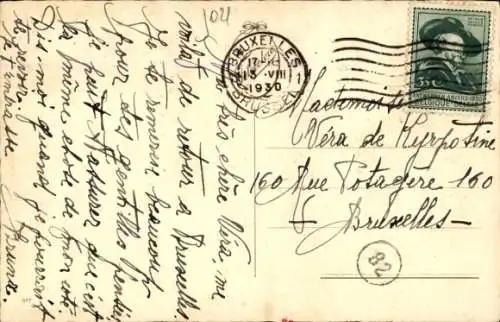 104
Ma très chère Véra, me
voilà de retour à Bruxelles.
Je te remercie beaucoup
pour des gentilles pensées
je peut t'assurer que c'est
la même chose de mon côté.
Dis moi quand je pourrait
te revoir.
Je t'embrasse
BRUXELLES
13 VIII
1930
BRUSSEL
1
35c
Mademoiselle
Véra de Kyrpotine
160 Rue Potagère 160
Bruxelles
82